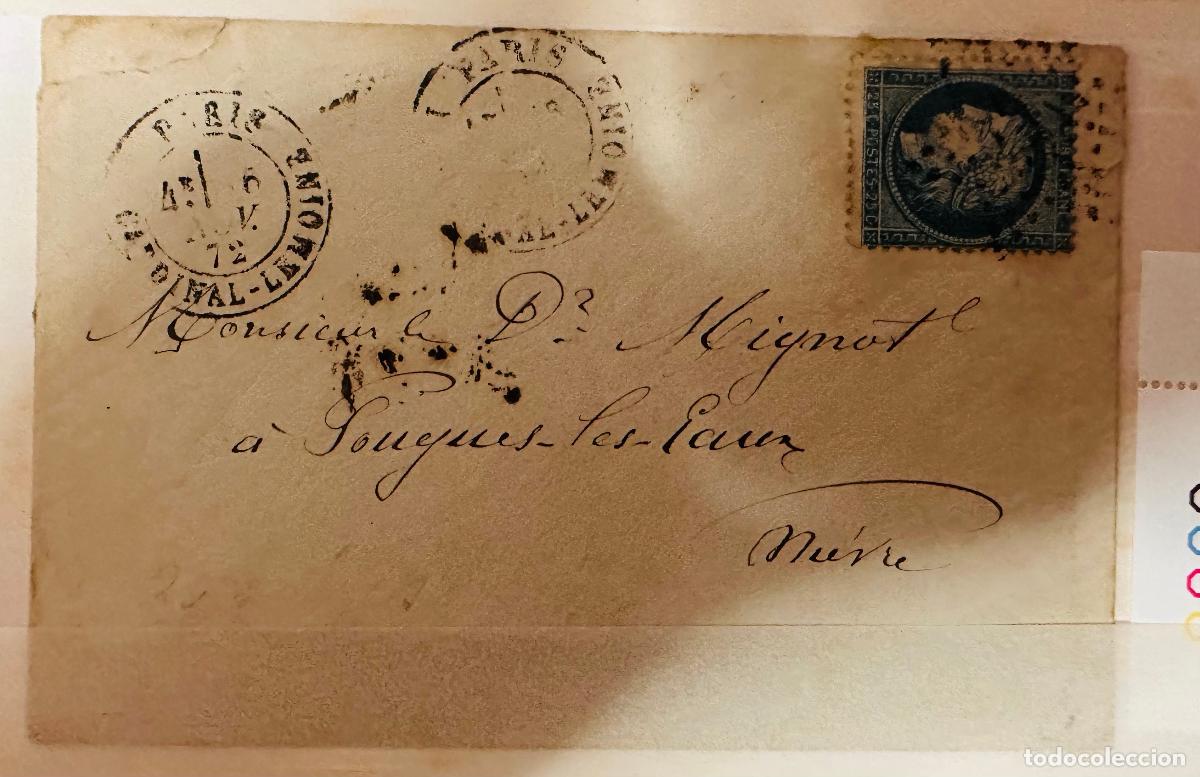 PARIS
6
NOV.
72
CARDINAL-LEMOINE
PARIS
LEMOINE
25 C. POSTES 25 C.
Monsieur le Dr Mignot
à Pougues-les-Eaux
Nièvre
todocoleccion